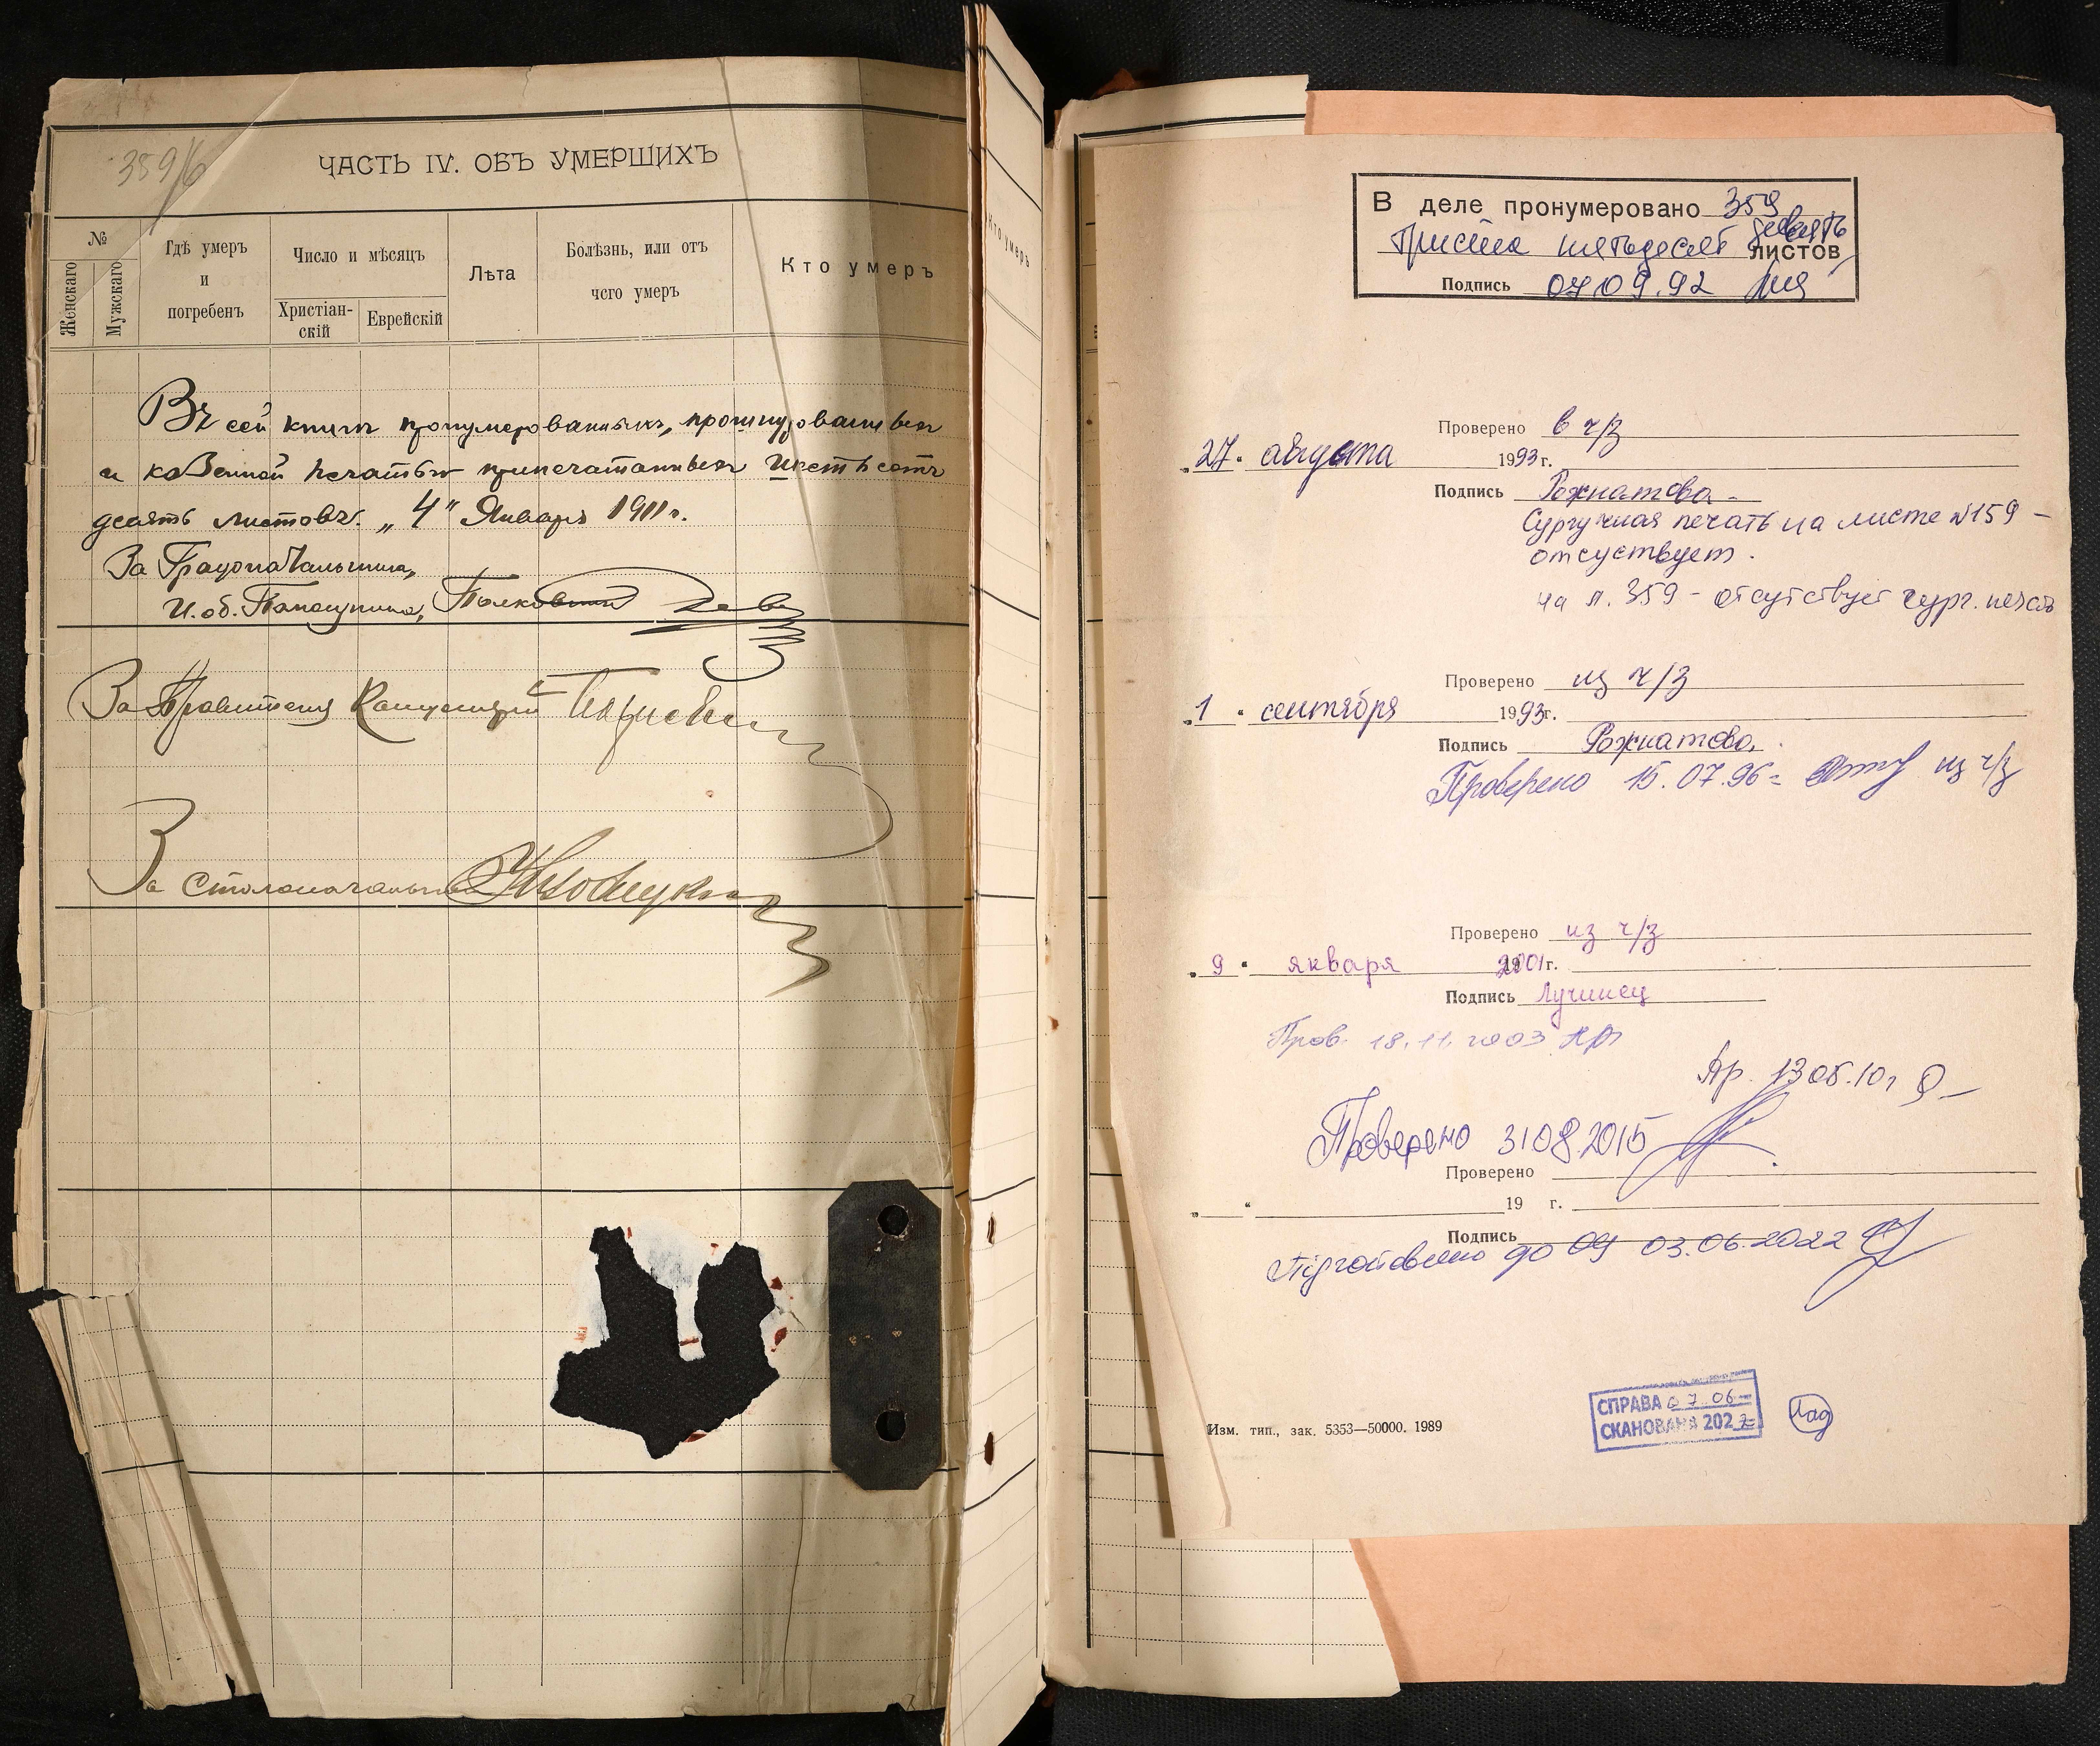 359/6
ЧАСТЬ IV. ОБЪ УМЕРШИХЪ
№
Женскаго
Мужскаго
Гдѣ умеръ
и
погребенъ
Число и мѣсяцъ
Христіан-
скій
Еврейскій
Лѣта
Болѣзнь, или отъ
чего умеръ
Кто умеръ
Въ сей книгѣ пронумерованныхъ, прошнурованныхъ
и казенной печатью припечатанныхъ шестьсотъ
десять листовъ. „4" Января 1911 г.
За Градоначальника,
И. об. Помощника, Полковникъ
За Правителя Канцеляріи
За Столоначальника
Кто умеръ
В деле пронумеровано 359
Триста пятьдесят девять
листов
Подпись 07.09.92
Проверено в ч/з
„27" августа 1993 г.
Подпись Рожнатова
Сургучная печать на листе №159 –
отсуствует.
на л. 359 – отсутствует сург. печать
Проверено из ч/з
„1" сентября 1993 г.
Подпись Рожнатова
Проверено 15.07.96 из ч/з
Проверено из ч/з
„9" января 2001 г.
Подпись Лучинец
Пров. 18.11.2003
13 05.10 г
Проверено 31 08 2015
Проверено
„ " 19 г.
Подпись
Підготовлено до 03.06.2022
СПРАВА 07 06
СКАНОВАНА 2022
Изм. тип., зак. 5353—50000. 1989